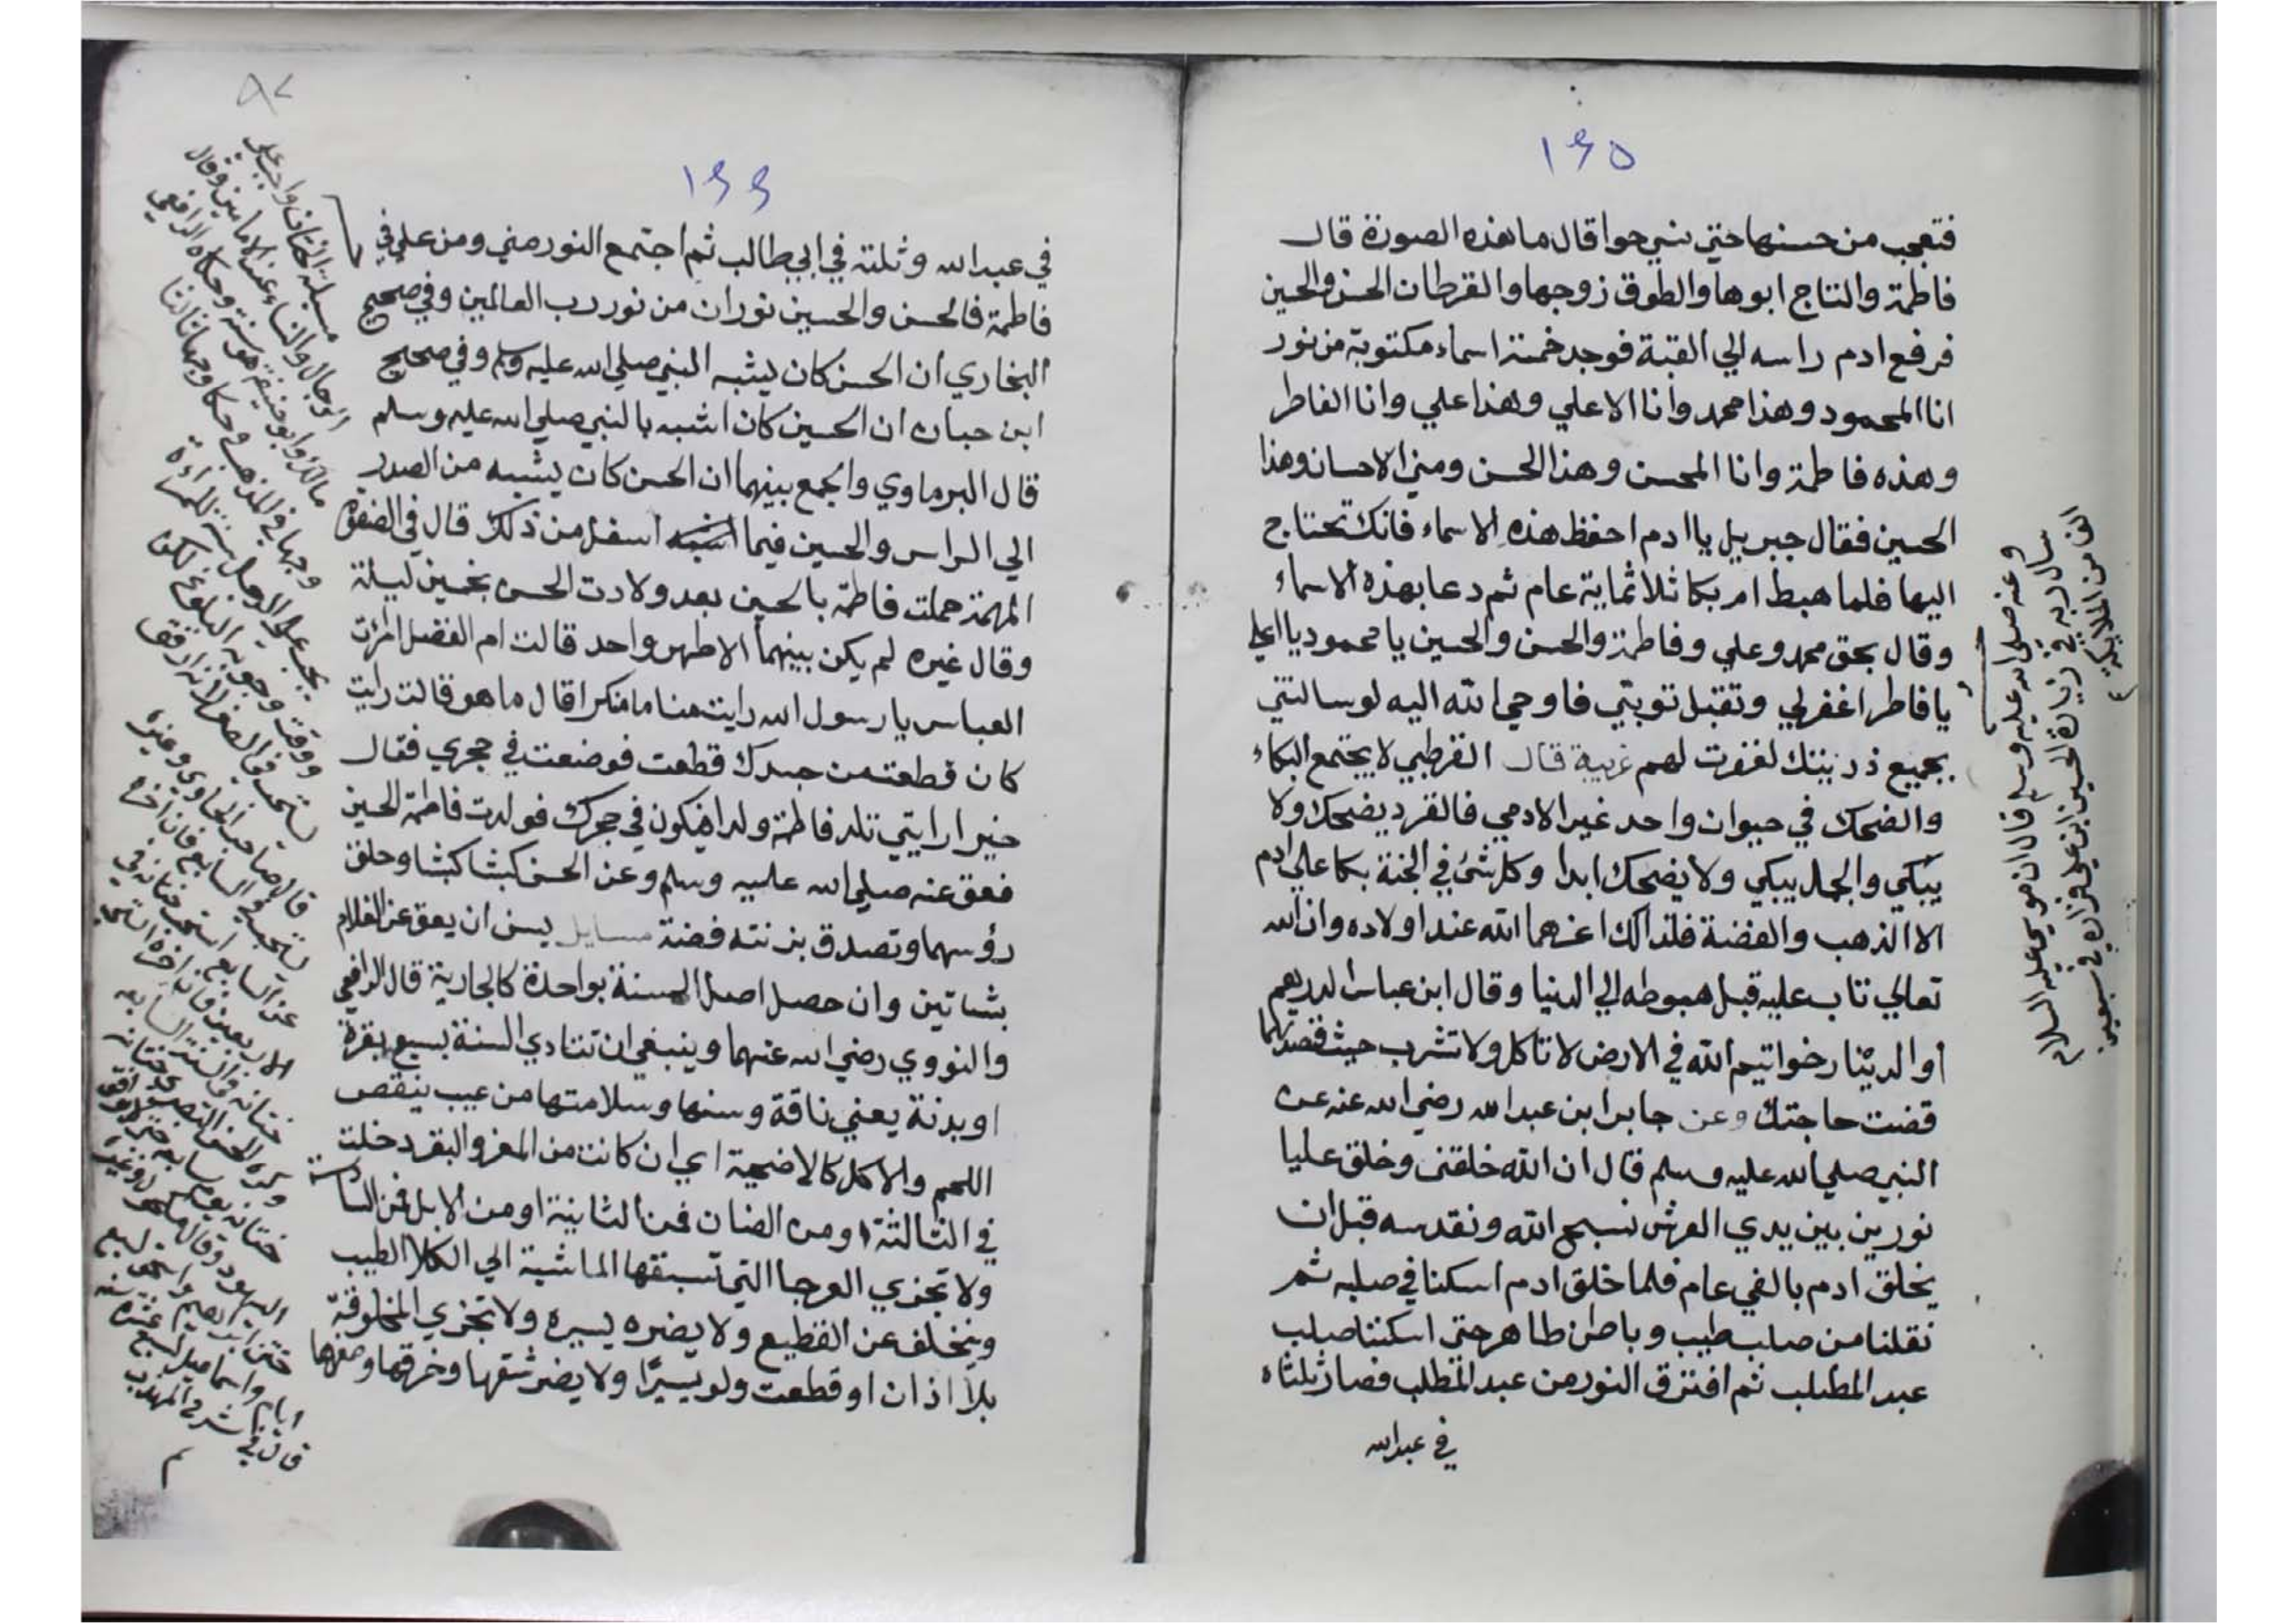 ١٤٥
فتعجب من حسنها حتى نسي حوا قال ما هذه الصورة قال
فاطمة والتاج ابوها والطوق زوجها والقرطان الحسن والحسين
فرفع ادم راسه الي القبة فوجد خمسة اسماء مكتوبة من نور
انا المحمود وهذا محمد وانا الاعلي وهذا علي وانا الفاطر
وهذه فاطمة وانا المحسن وهذا الحسن ومني الاحسان وهذا
الحسين فقال جبريل يا ادم احفظ هذه الاسماء فانك تحتاج
اليها فلما هبط ادم بكا ثلاثماية عام ثم دعا بهذه الاسماء
وقال بحق محمد وعلي وفاطمة والحسن والحسين يا محمود يا اعلي
يا فاطر اغفر لي وتقبل توبتي فاوحي الله اليه لو سالتني
بجميع ذريتك لغفرت لهم غريبة قال القرطبي لا يجتمع البكاء
والضحك في حيوان واحد غير الادمي فالقرد يضحك ولا
يبكي والجمل يبكي ولا يضحك ابدا وكل شئ في الجنة بكا علي ادم
الا الذهب والفضة فلذالك اعزهما الله عند اولاده وان الله
تعالي تاب عليه قبل هبوطه الي الدنيا وقال ابن عباس الدرهم
او الدينار خواتيم الله في الارض لا تاكل ولا تشرب حيث قصدتهما
قضت حاجتك وعن جابر ابن عبد الله رضي الله عنه عن
النبي صلي الله عليه وسلم قال ان الله خلقني وخلق عليا
نورين بين يدي العرش نسبح الله ونقدسه قبل ان
يخلق ادم بالفي عام فلما خلق ادم اسكنا في صلبه ثم
نقلنا من صلب طيب وباطن طاهر حتى اسكننا صلب
عبد المطلب ثم افترق النور من عبد المطلب فصار ثلثاه
في عبد الله
وعنه صلي الله عليه وسلم قال ان موسي عليه السلام
سال ربه في زيارة الحسين ابن علي فزاره في سبعين
الف من الملايكة
٨٢
١٤٤
في عبد الله وثلثه في ابي طالب ثم اجتمع النور مني ومن علي في
فاطمة فالحسن والحسين نوران من نور رب العالمين وفي صحيح
البخاري ان الحسن كان يشبه النبي صلي الله عليه وسلم وفي صحيح
ابن حبان ان الحسين كان اشبه بالنبي صلي الله عليه وسلم
قال البرماوي والجمع بينهما ان الحسن كان يشبه من الصدر
الي الراس والحسين فيما اشبه اسفل من ذلك قال في
المهمة حملت فاطمة بالحسين بعد ولادت الحسن بخمسين ليلة
وقال غيره لم يكن بينهما الا طهر واحد قالت ام الفضل امرات
العباس يا رسول الله رايت مناما منكرا قال ما هو قالت رايت
كان قطعة من جسدك قطعت فوضعت في حجري فقال
خيرا رايتي تلد فاطمة ولدا فيكون في حجرك فولدت فاطمة الحسين
فعق عنه صلي الله عليه وسلم وعن الحسن كبشا كبشا وحلق
رؤسهما وتصدق بزنته فضة مسايل يسن ان يعق عن الغلام
بشاتين وان حصل اصل السنة بواحدة كالجارية قال الرافعي
والنووي رضي الله عنهما وينبغي ان تتادي السنة بسبع بقرة
او بدنة يعني ناقة وسنها وسلامتها من عيب ينقص
اللحم والاكل كالاضحية اي ان كانت من المعز والبقر دخلت
في الثالثة او من الضان فمن الثانية او من الابل فمن السادسة
ولا تجزي العرجا التي تسبقها الماشية الي الكلا الطيب
ويتخلف عن القطيع ولا يضره يسيره ولا تجزي المخلوقة
بلا اذان او قطعت ولو يسيرا ولا يضر شقها وخرقها
مسيلة الختان واجب علي
الرجال والنساء عند الامامين وقال
مالك وابو حنيفة هو سنة وحكاه الرافعي
وجها في المذهب وحكا وجها ثالثا
يجب علي الرجل سنة للمراة
ووقت وجوبه البلوغ لكن
يستحب في الصغر لانه ارفق
قال صاحب الحاوي وغيره
يستحب في السابع فان اخره
عن السابع استحب ختانه في
الاربعين فان اخره استحب
ختانه في السنة السابعة
وكره الحسن البصري ختانه